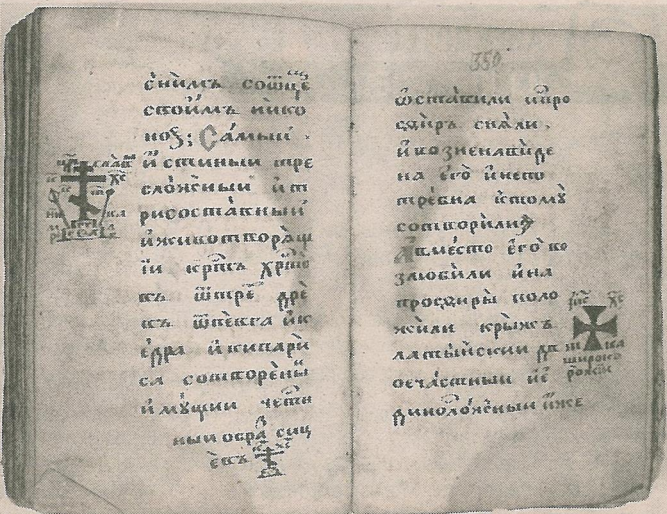 с ни́мъ со ѿц҃е
свои́мъ нико
но́ѕ; Са́мыи
и́стиныи тре
сло́жныи и т
рисоста́вныи
и животворѧщ
іи кртъ хрⷭто
въ ѿ тре дре
въ ѿ пе́вга и к
е́дра и кипари
са сотворе́ны
и му́щии честн
ныи о́бра сиц
е́въ
350
ѡста́вили и про
сѳиръ сня́ли.
и возненави́де
на его́ и непо
тре́бна к томꙋ̀
сотвори́ли
А вмѣсто его́ во
злюби́ли и на
просѳи́ры поло
жи́ли кры́жъ
латы́йскии дв
оеча́стныи и е
диноло́жныи и́же
іис хс
ни ка
широко
рожїи